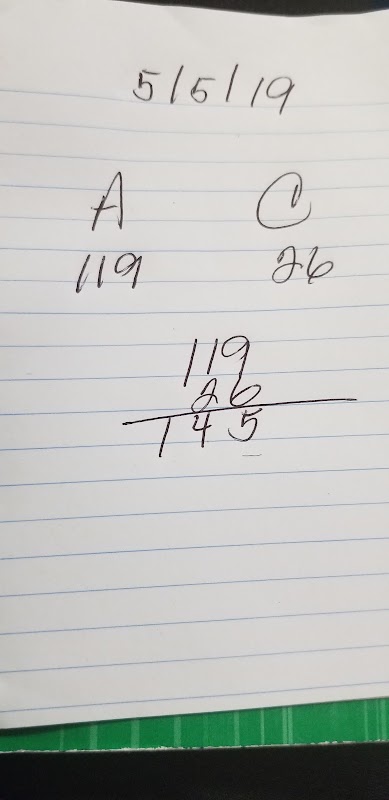 5/5/19
A C
119 26
119
26
145